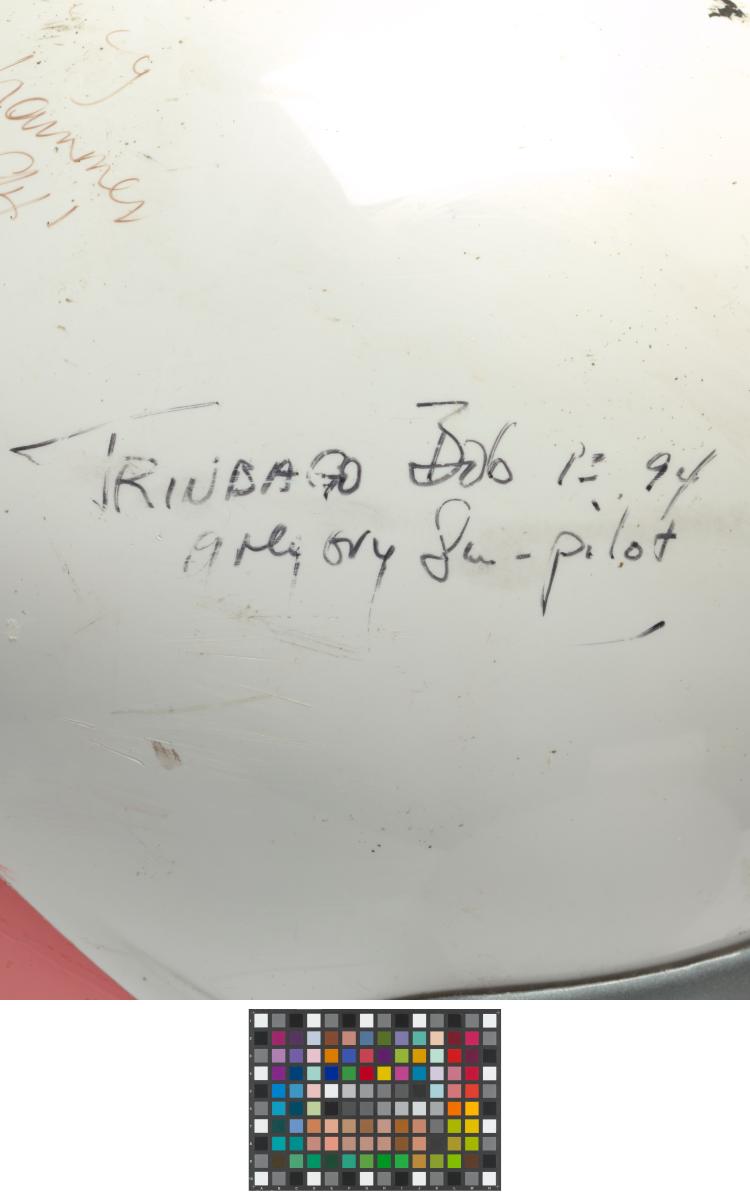 hammer
TRINBAGO Bob 1= 94
Gregory Sun-pilot